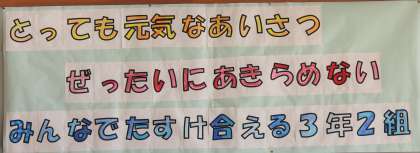 とっても元気なあいさつ
ぜったいにあきらめない
みんなでたすけ合える3年2組